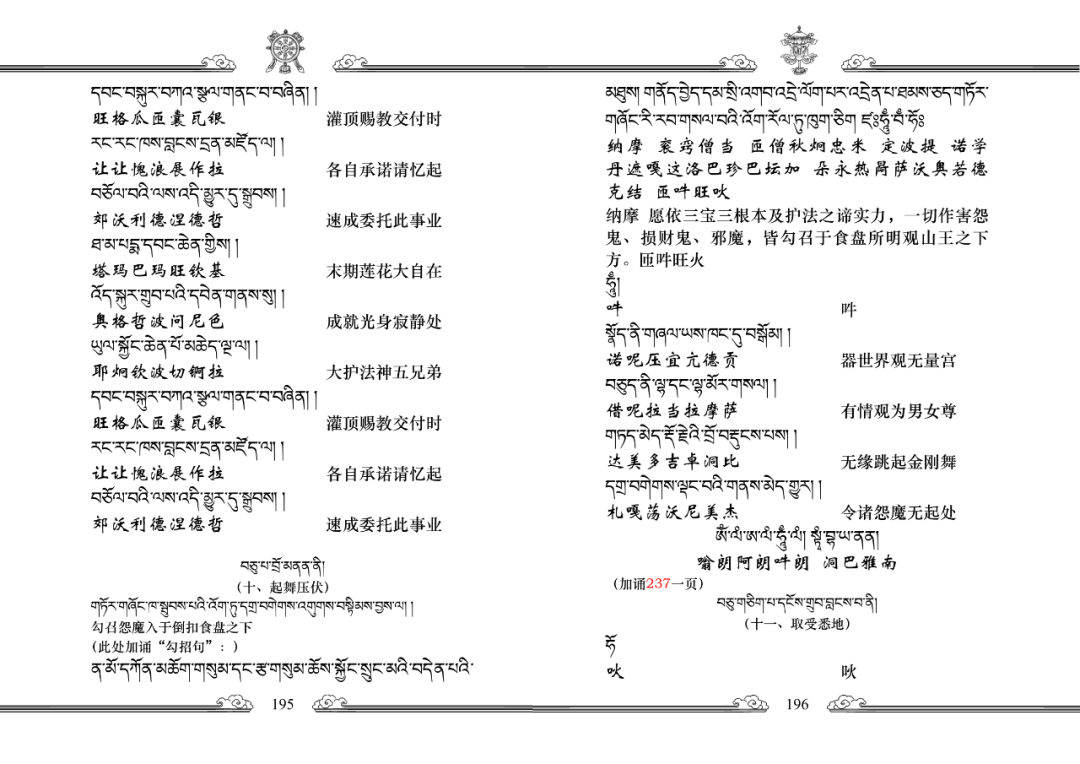 དབང་བསྐུར་བཀའ་སྩལ་གནང་བ་བཞིན། །
旺格瓜匝囊瓦银 灌顶赐教交付时
རང་རང་ཁས་བླངས་དྲན་མཛོད་ལ། །
让让愧浪展作拉 各自承诺请忆起
བཅོལ་བའི་ལས་འདི་མྱུར་དུ་སྒྲུབས། །
郊沃利德涅德哲 速成委托此事业
ཐ་མ་པདྨ་དབང་ཆེན་གྱིས། །
塔玛巴玛旺钦基 末期莲花大自在
འོད་སྐུར་གྲུབ་པའི་དབེན་གནས་སུ། །
奥格哲波问尼色 成就光身寂静处
ཡུལ་སྐྱོང་ཆེན་པོ་མཆེད་ལྔ་ལ། །
耶炯钦波切锕拉 大护法神五兄弟
དབང་བསྐུར་བཀའ་སྩལ་གནང་བ་བཞིན། །
旺格瓜匝囊瓦银 灌顶赐教交付时
རང་རང་ཁས་བླངས་དྲན་མཛོད་ལ། །
让让愧浪展作拉 各自承诺请忆起
བཅོལ་བའི་ལས་འདི་མྱུར་དུ་སྒྲུབས། །
郊沃利德涅德哲 速成委托此事业
བཅུ་པ་བྲོ་མནན་ནི།
(十、起舞压伏)
གཏོར་གཞོང་ཁ་སྦུབས་པའི་འོག་ཏུ་དགྲ་བགེགས་འགུགས་བསྟིམས་བྱས་ལ། །
勾召怨魔入于倒扣食盘之下
(此处加诵“勾招句”：)
ན་མོ་དཀོན་མཆོག་གསུམ་དང་རྩ་གསུམ་ཆོས་སྐྱོང་སྲུང་མའི་བདེན་པའི་
195
མཐུས། གནོད་བྱེད་དམ་སྲི་འགབ་འདྲེ་ལོག་པར་འདྲེན་པ་ཐམས་ཅད་གཏོར་
གཞོང་རི་རབ་གསལ་བའི་འོག་རོལ་ཏུ་ཁུག་ཅིག ཛཿཧཱུྃ་བྃ་ཧོཿ
纳摩 衮窍僧当 匝僧秋炯忠米 定波提 诺学
丹遮嘎这洛巴珍巴坛加 朵永热咼萨沃奥若德
克结 匝吽旺吙
纳摩 愿依三宝三根本及护法之谛实力，一切作害怨
鬼、损财鬼、邪魔，皆勾召于食盘所明观山王之下
方。匝吽旺火
ཧཱུྃ།
吽 吽
སྣོད་ནི་གཞལ་ཡས་ཁང་དུ་བསྒོམ། །
诺呢压宜亢德贡 器世界观无量宫
བཅུད་ནི་ལྷ་དང་ལྷ་མོར་གསལ། །
借呢拉当拉摩萨 有情观为男女尊
གཏད་མེད་རྡོ་རྗེའི་བྲོ་བརྡུངས་པས། །
达美多吉卓洞比 无缘跳起金刚舞
དགྲ་བགེགས་ལྡང་བའི་གནས་མེད་གྱུར། །
札嘎荡沃尼美杰 令诸怨魔无起处
ཨོཾ་ལཾ་ཨ་ལཾ་ཧཱུྃ་ལཾ། སྟཾ་བྷ་ཡ་ནན།
嗡朗阿朗吽朗 洞巴雅南
(加诵237一页)
བཅུ་གཅིག་པ་དངོས་གྲུབ་བླངས་བ་ནི།
(十一、取受悉地)
ཧོ
吙 吙
196